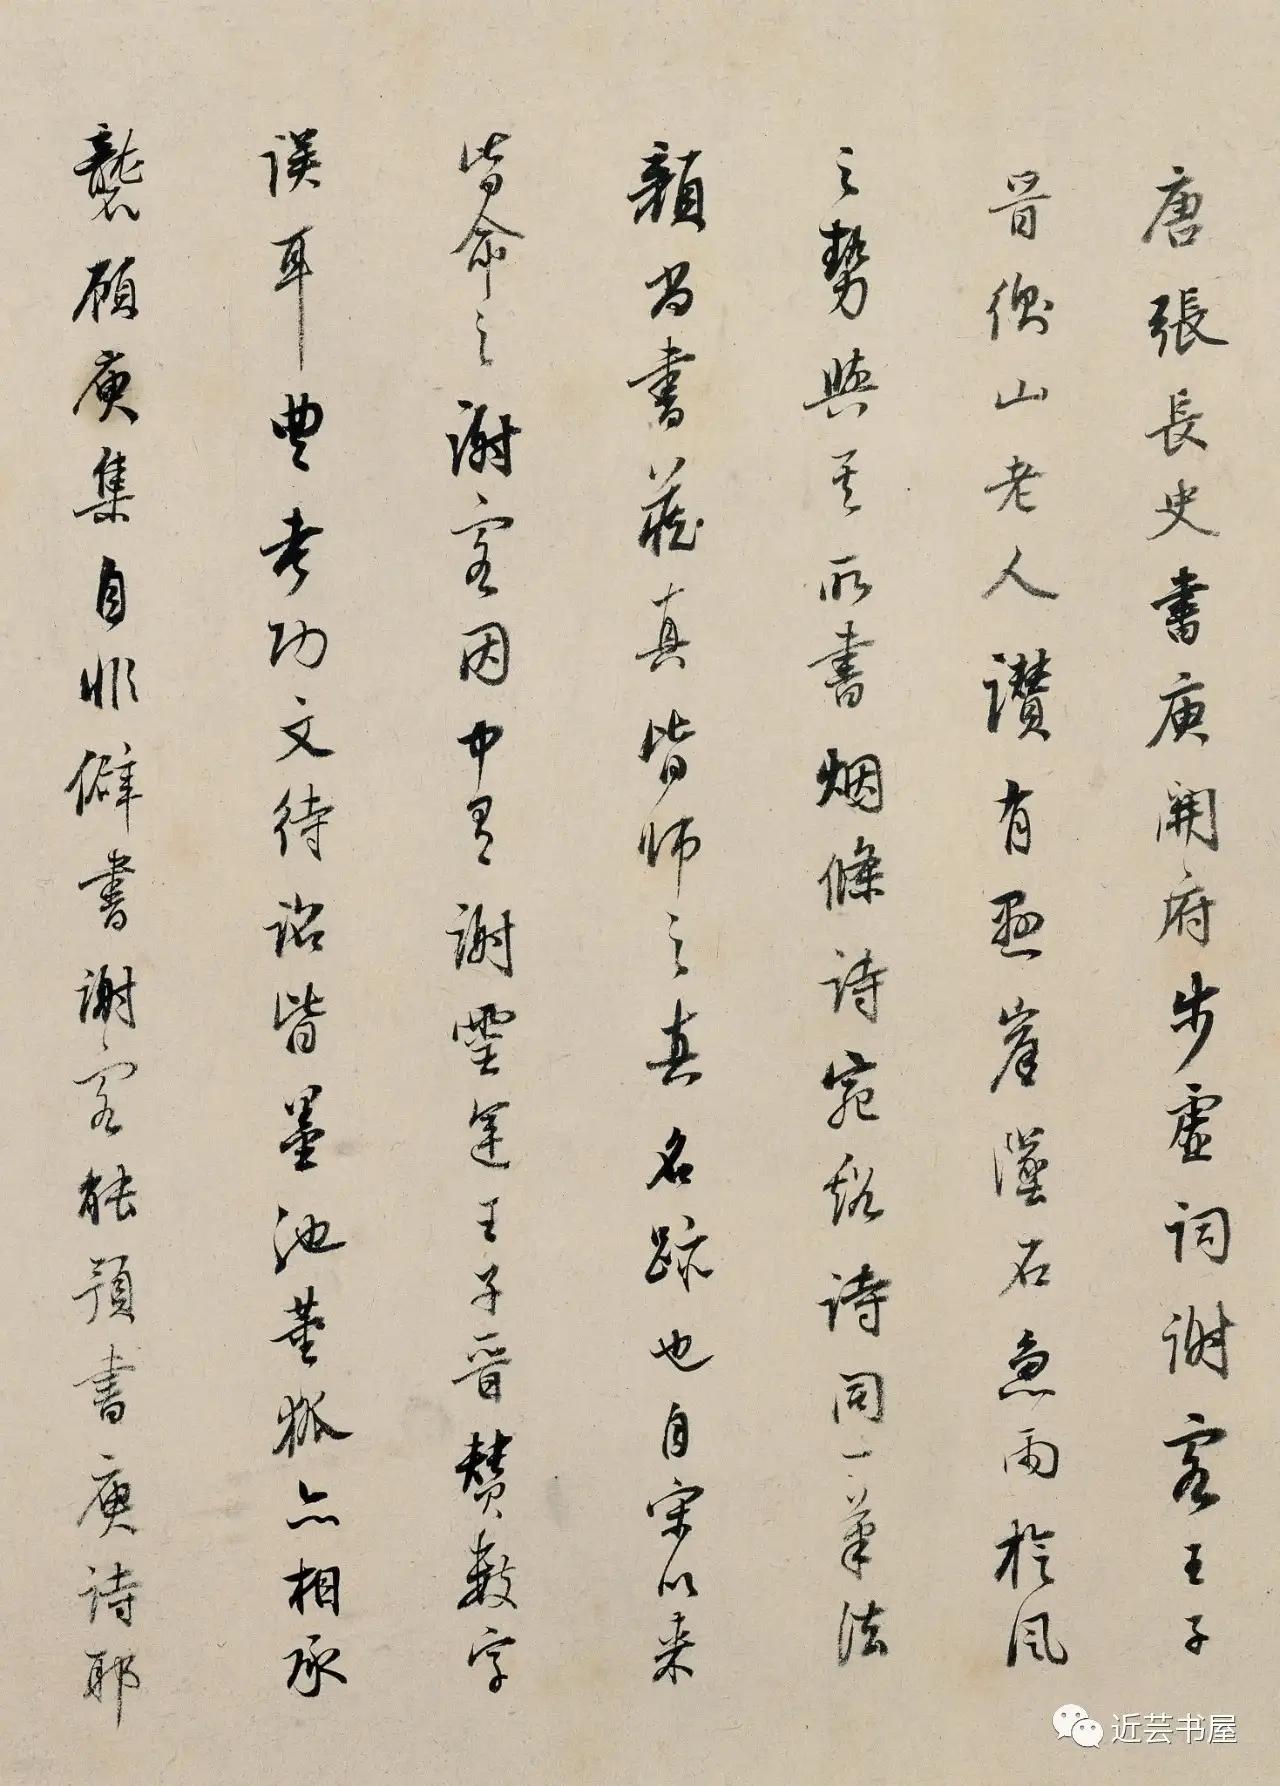 唐張長史書庾開府步虛詞謝客王子
晉衡山老人讚有懸崖墜石急雨旋風
之勢與其所書煙條詩宛谿詩同一筆法
顏尚書藏真皆師之真名跡也自宋以來
皆命之謝客因中有謝靈運王子晉贊數字
誤耳豐考功文待詔皆墨池董狐亦相承
襲顧庾集自非僻書謝客能預書庾詩耶
近芸书屋